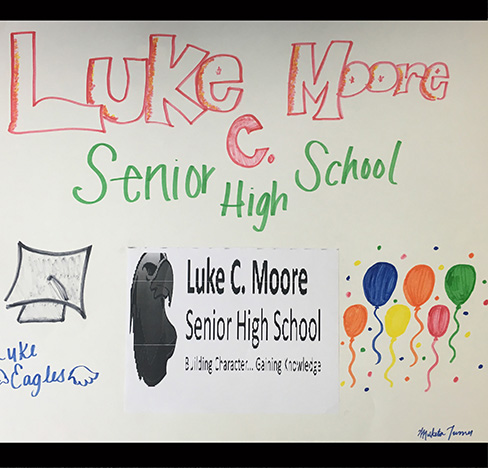 Luke Moore
C.
Senior High School
Luke C. Moore
Senior High School
Building Character... Gaining Knowledge
Luke
Eagles